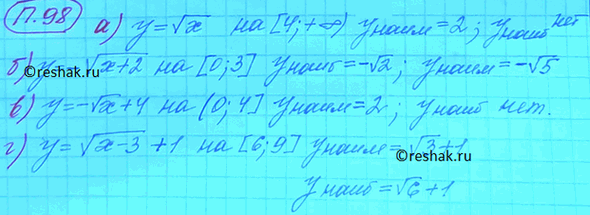 П.98 а) y=√x на [4;+∞) yнаим=2; yнаиб нет
б) y=-√x+2 на [0;3] yнаиб=-√2; yнаим=-√5
©reshak.ru
в) y=-√x+4 на (0;4] yнаим=2; yнаиб нет.
г) y=√x-3+1 на [6;9] yнаим=√3+1
©reshak.ru
yнаиб=√6+1